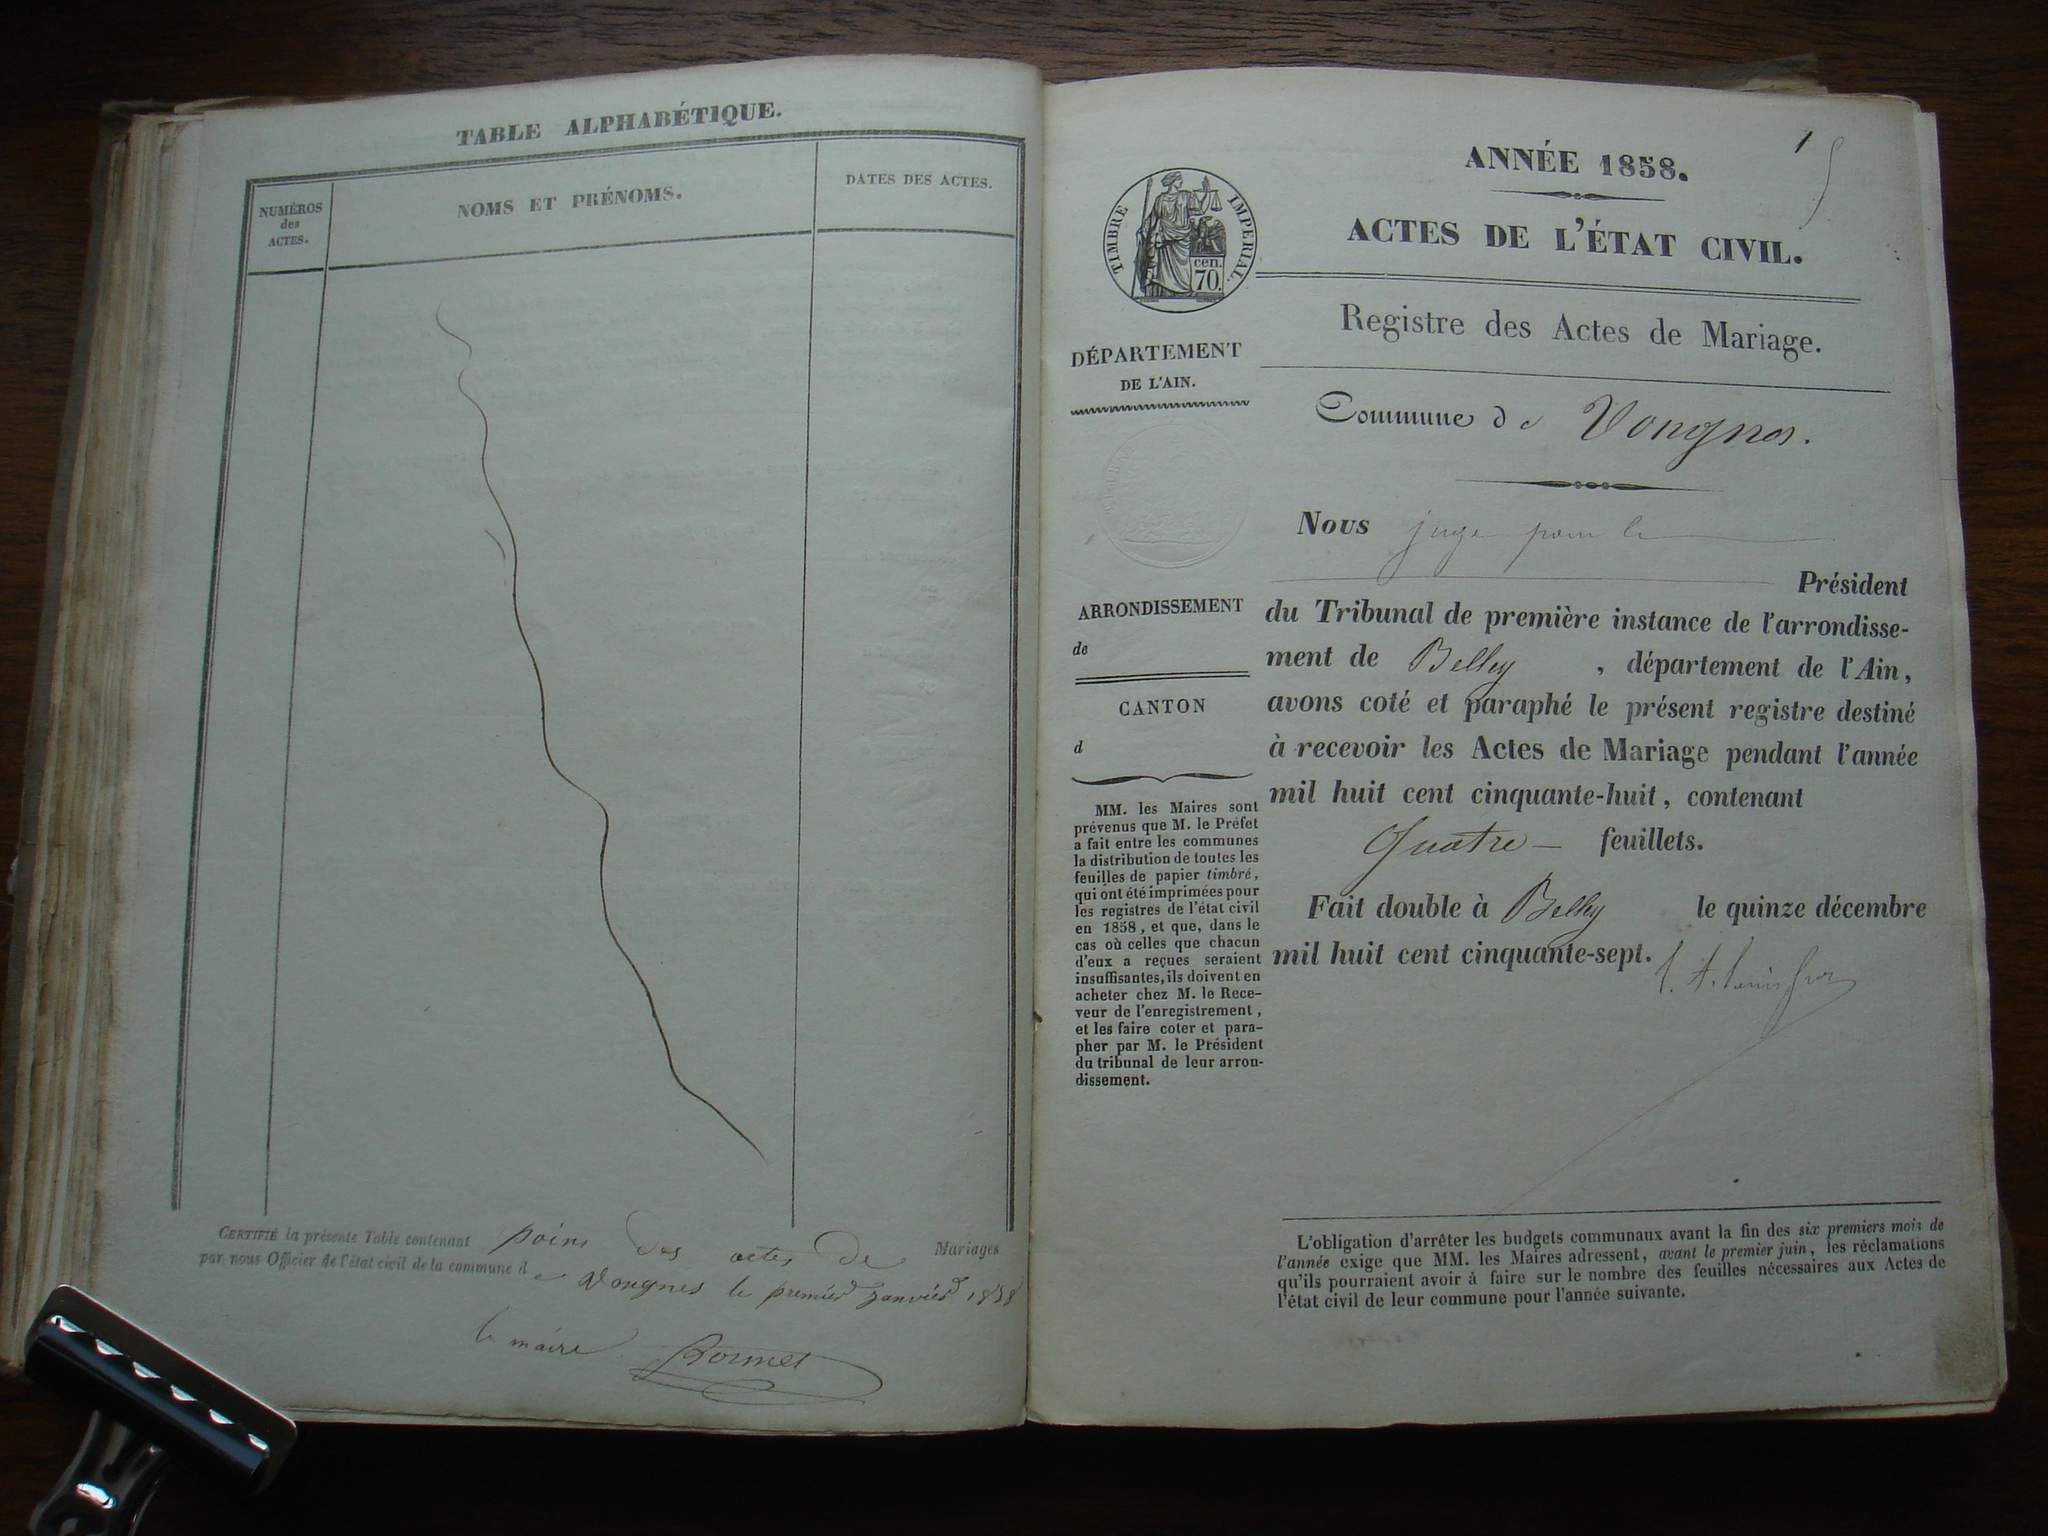 TABLE ALPHABÉTIQUE.
NUMÉROS
des
ACTES.
NOMS ET PRÉNOMS.
DATES DES ACTES.
CERTIFIÉ la présente Table contenant poins des actes de Mariages
par nous Officier de l'état civil de la commune de Vongnes le premier janvier 1858
le maire Bonnet
1
ANNÉE 1858.
ACTES DE L'ÉTAT CIVIL.
TIMBRE IMPERIAL.
cen.
70.
Registre des Actes de Mariage.
DÉPARTEMENT
DE L'AIN.
Commune de Vongnes.
Nous juge pour le
Président
du Tribunal de première instance de l'arrondisse-
ment de Belley, département de l'Ain,
avons coté et paraphé le présent registre destiné
à recevoir les Actes de Mariage pendant l'année
mil huit cent cinquante-huit, contenant
Quatre feuillets.
Fait double à Belley le quinze décembre
mil huit cent cinquante-sept.
ARRONDISSEMENT
de
CANTON
d
MM. les Maires sont
prévenus que M. le Préfet
a fait entre les communes
la distribution de toutes les
feuilles de papier timbré,
qui ont été imprimées pour
les registres de l'état civil
en 1858, et que, dans le
cas où celles que chacun
d'eux a reçues seraient
insuffisantes, ils doivent en
acheter chez M. le Rece-
veur de l'enregistrement,
et les faire coter et para-
pher par M. le Président
du tribunal de leur arron-
dissement.
L'obligation d'arrêter les budgets communaux avant la fin des six premiers mois de
l'année exige que MM. les Maires adressent, avant le premier juin, les réclamations
qu'ils pourraient avoir à faire sur le nombre des feuilles nécessaires aux Actes de
l'état civil de leur commune pour l'année suivante.